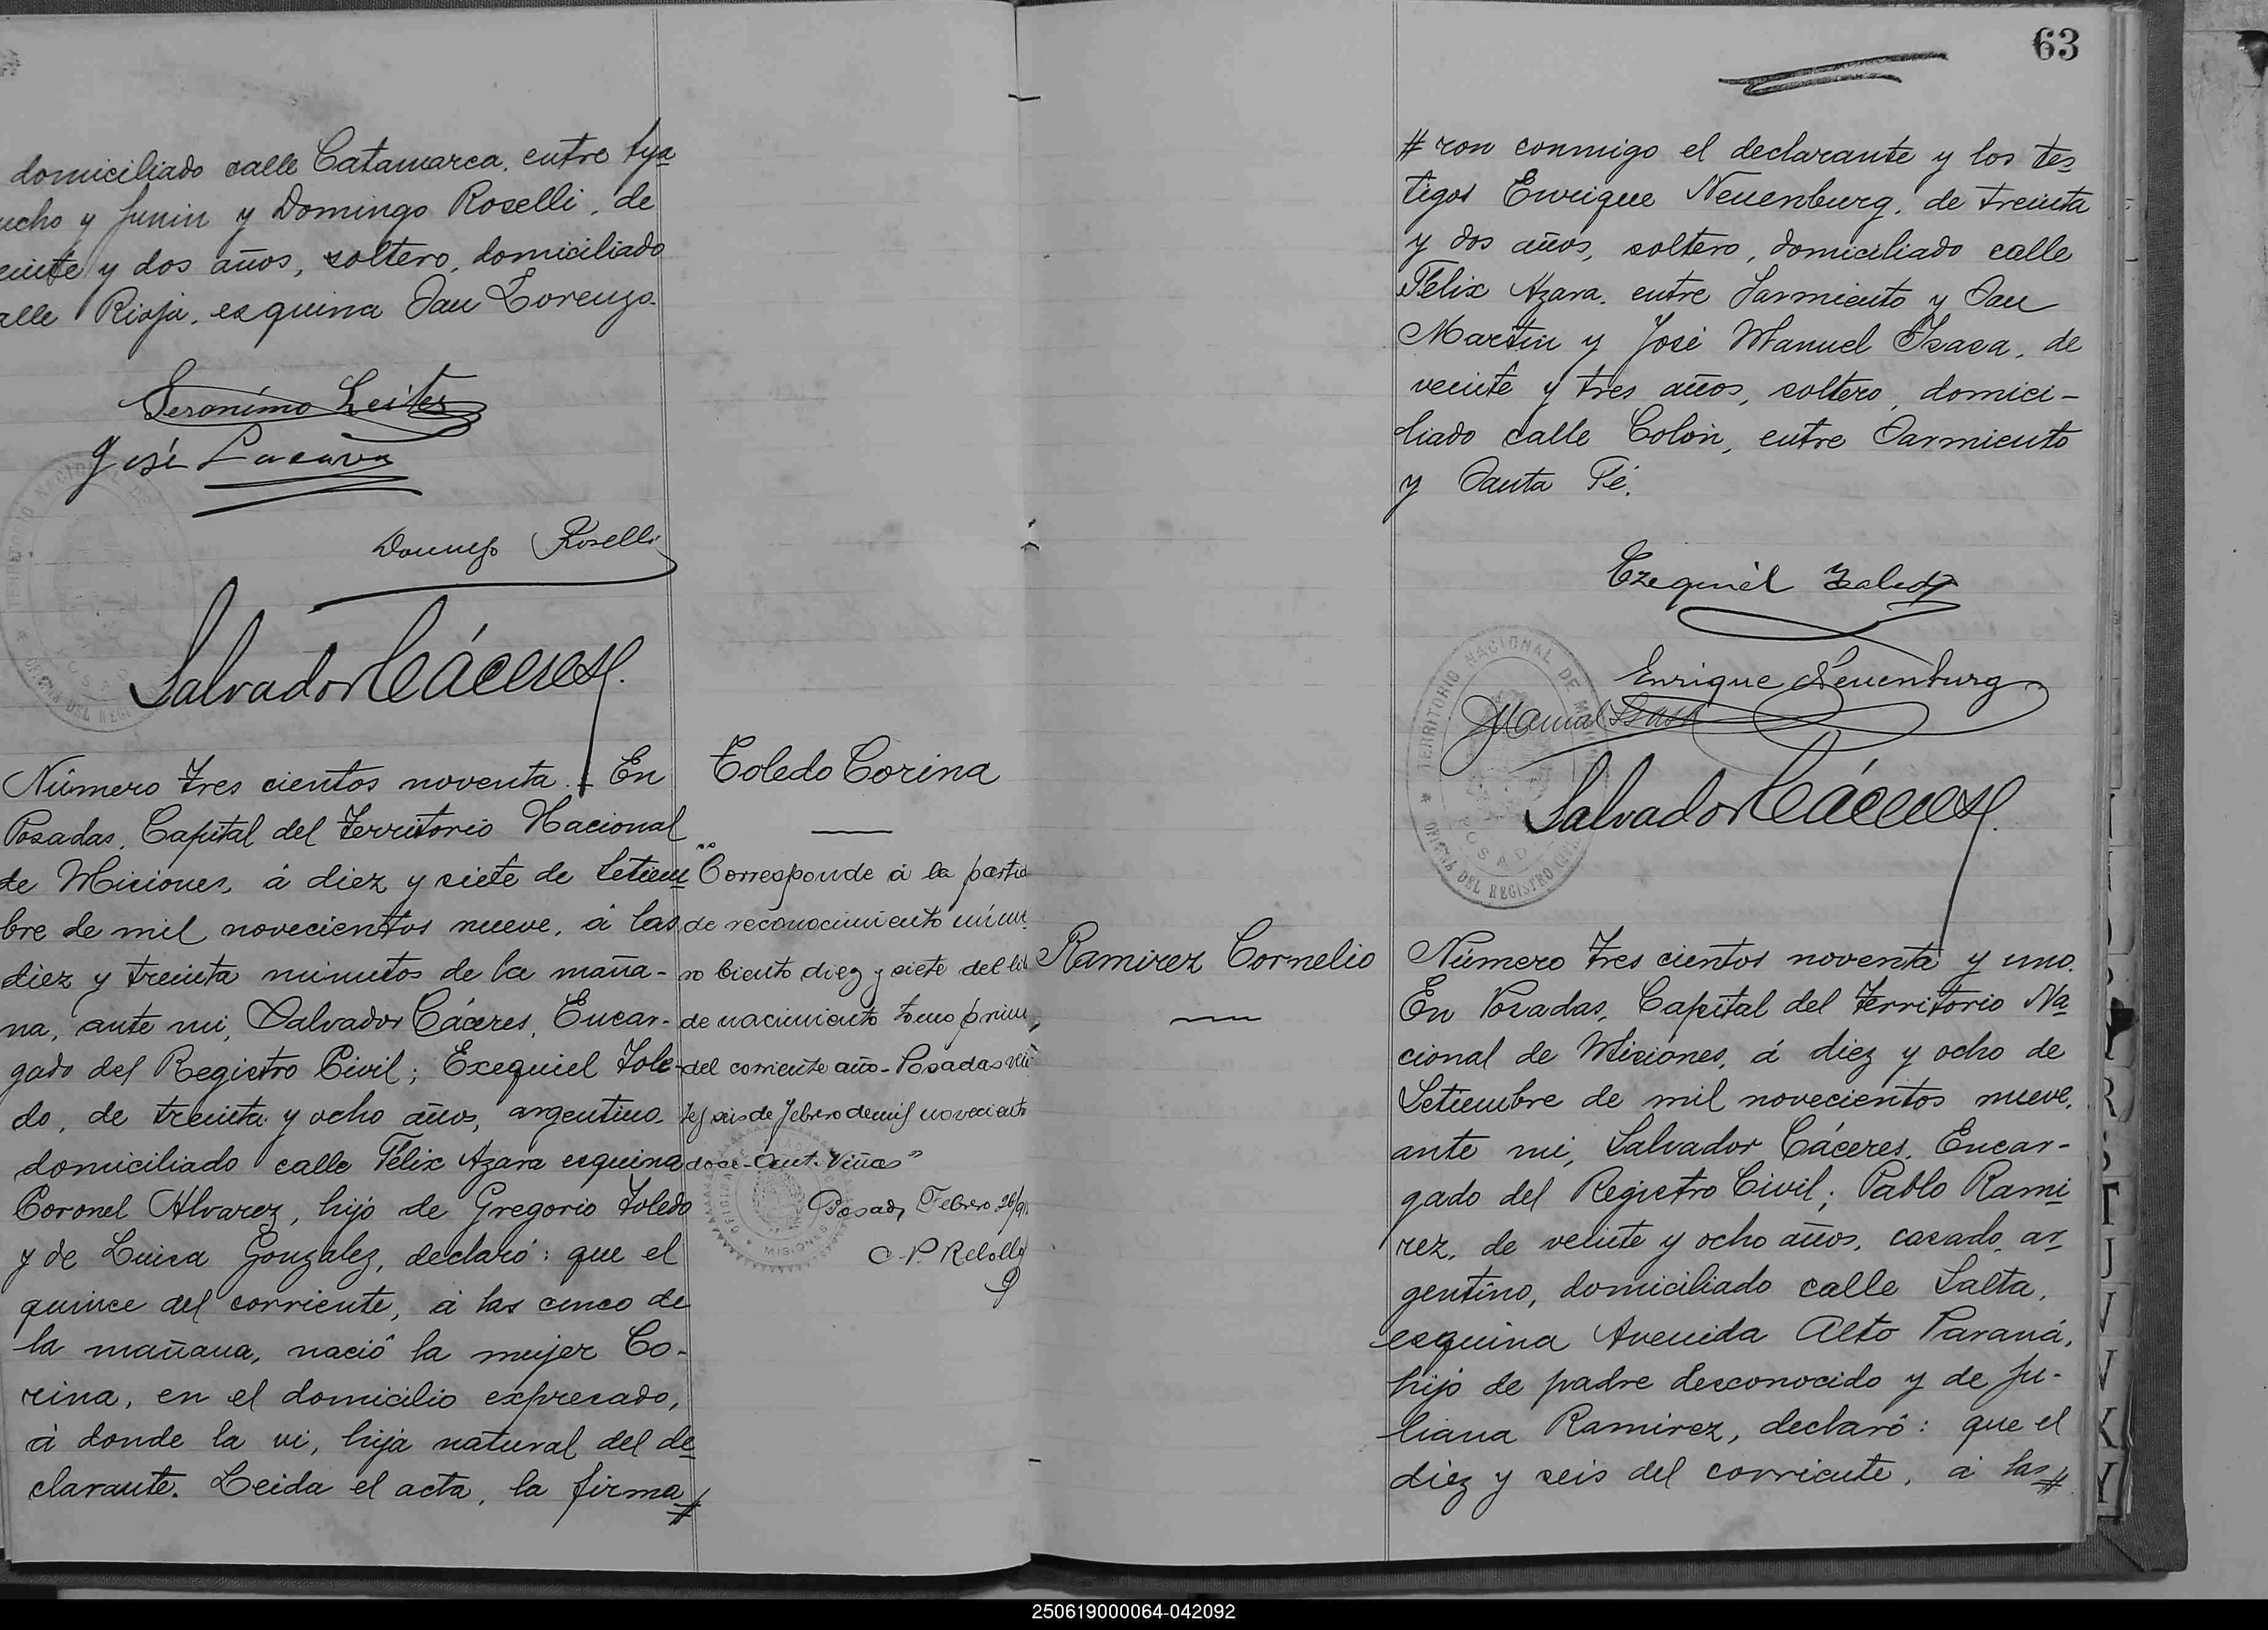 domiciliado calle Catamarca, entre Aya
ucho y Junin y Domingo Roselli, de
einte y dos años, soltero, domiciliado
alle Rioja, esquina San Lorenzo.
Geronimo Leites
José Lacava
Domingo Roselli
Salvador Cáceres
Número tres cientos noventa. En
Posadas, Capital del Territorio Nacional
de Misiones, á diez y siete de Setiem
bre de mil novecientos nueve, á las
diez y treinta minutos de la maña-
na, ante mi, Salvador Cáceres, Encar-
gado del Registro Civil; Exequiel Tole-
do, de treinta y ocho años, argentino
domiciliado calle Félix Azara esquina
Coronel Alvarez, hijo de Gregorio Toledo
y de Luisa Gonzalez, declaró: que el
quince del corriente, á las cinco de
la mañana, nació la mujer Co-
rina, en el domicilio expresado,
á donde la vi, hija natural del de
clarante. Leida el acta, la firma#
Toledo Corina
"Corresponde á la partid
de reconocimiento núm
ro ciento diez y siete del lib
de nacimiento tomo prim
del corriente año - Posadas vein
te y seis de febrero de mil novecientos
doce - Ant. Viñas"
Posadas, Febrero 26/91
MISIONES
TERRITORIO NACIONAL DE
OFICINA DEL REGISTRO
63
#ron conmigo el declarante y los tes
tigos Enrique Neuenburg, de treinta
y dos años, soltero, domiciliado calle
Félix Azara, entre Sarmiento y San
Martin y José Manuel Isasa, de
veinte y tres años, soltero, domici-
liado calle Colón, entre Sarmiento
y Santa Fé.
Ezequiel Toledo
Enrique Neuenburg
JManuel Isasa
Salvador Cáceres
TERRITORIO NACIONAL DE MISIONES
POSADAS
OFICINA DEL REGISTRO CIVIL
Ramirez Cornelio
Número tres cientos noventa y uno.
En Posadas, Capital del Territorio Na
cional de Misiones, á diez y ocho de
Setiembre de mil novecientos nueve,
ante mi, Salvador Cáceres, Encar-
gado del Registro Civil; Pablo Rami
rez, de veinte y ocho años, casado, ar
gentino, domiciliado calle Salta,
esquina Avenida Alto Paraná,
hijo de padre desconocido y de Ju-
liana Ramirez, declaró: que el
diez y seis del corriente, á las#
R
S
T
U
V
X
Y
250619000064-042092